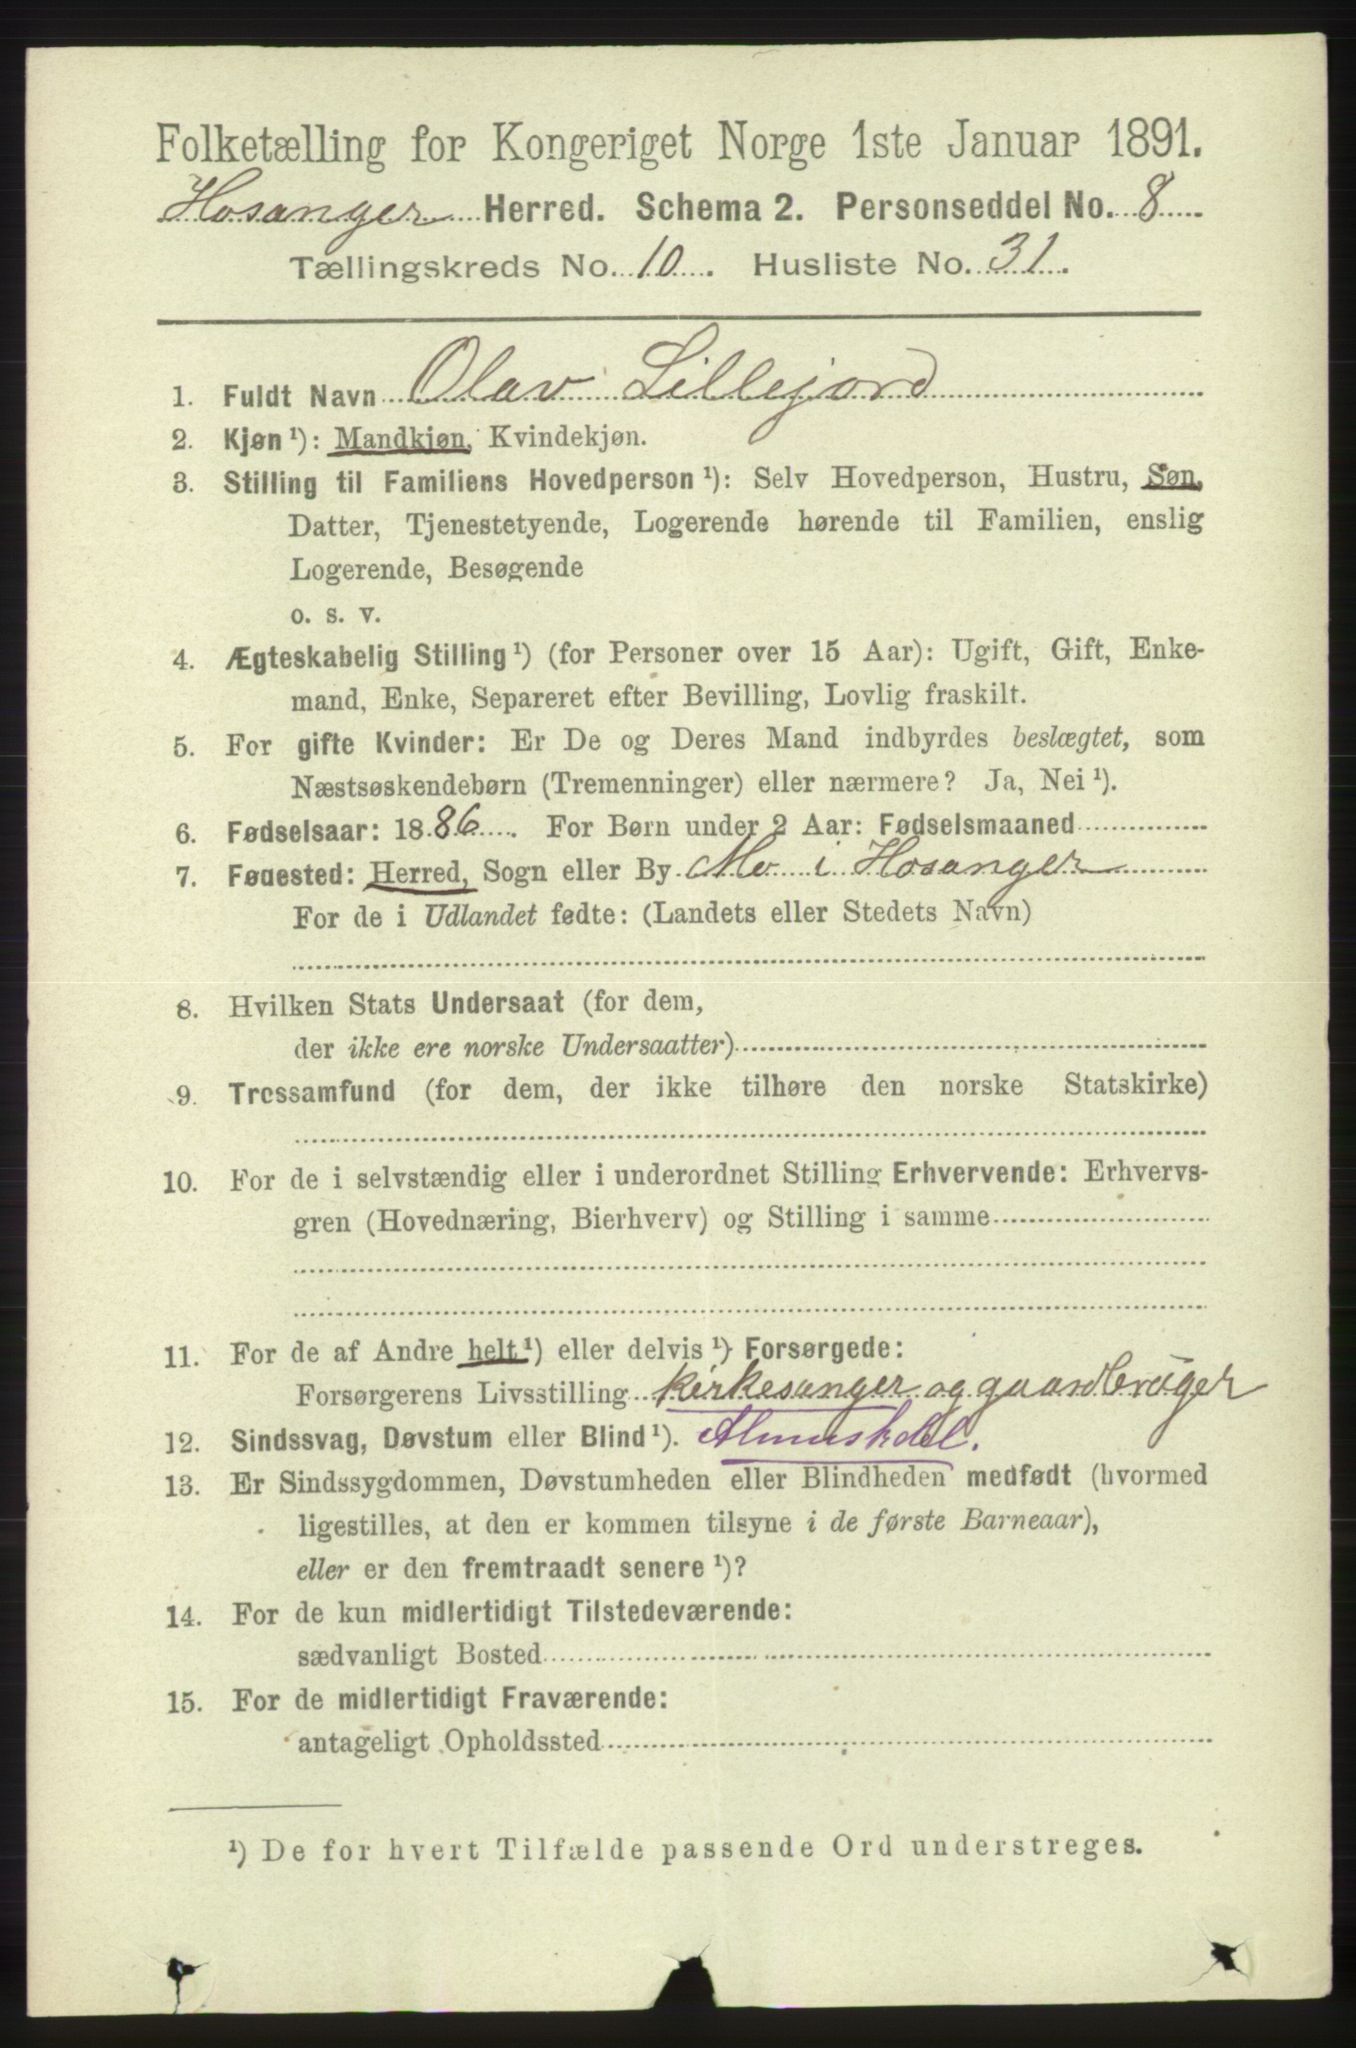 Folketælling for Kongeriget Norge 1ste Januar 1891.
Hosanger Herred. Schema 2. Personseddel No. 8
Tællingskreds No. 10. Husliste No. 31.
1. Fuldt Navn Olav Lillejord
2. Kjøn ¹): Mandkjøn, Kvindekjøn.
3. Stilling til Familiens Hovedperson ¹): Selv Hovedperson, Hustru, Søn,
Datter, Tjenestetyende, Logerende hørende til Familien, enslig
Logerende, Besøgende
o. s. v.
4. Ægteskabelig Stilling ¹) (for Personer over 15 Aar): Ugift, Gift, Enke-
mand, Enke, Separeret efter Bevilling, Lovlig fraskilt.
5. For gifte Kvinder: Er De og Deres Mand indbyrdes beslægtet, som
Næstsøskendebørn (Tremenninger) eller nærmere? Ja, Nei ¹).
6. Fødselsaar: 1886. For Børn under 2 Aar: Fødselsmaaned
7. Fødested: Herred, Sogn eller By Mo i Hosanger
For de i Udlandet fødte: (Landets eller Stedets Navn)
8. Hvilken Stats Undersaat (for dem,
der ikke ere norske Undersaatter)
9. Trossamfund (for dem, der ikke tilhøre den norske Statskirke)
10. For de i selvstændig eller i underordnet Stilling Erhvervende: Erhvervs-
gren (Hovednæring, Bierhverv) og Stilling i samme
11. For de af Andre helt ¹) eller delvis ¹) Forsørgede:
Forsørgerens Livsstilling kirkesanger og gaardbrüger
12. Sindssvag, Døvstum eller Blind ¹).
13. Er Sindssygdommen, Døvstumheden eller Blindheden medfødt (hvormed
ligestilles, at den er kommen tilsyne i de første Barneaar),
eller er den fremtraadt senere ¹)?
14. For de kun midlertidigt Tilstedeværende:
sædvanligt Bosted
15. For de midlertidigt Fraværende:
antageligt Opholdssted
¹) De for hvert Tilfælde passende Ord understreges.